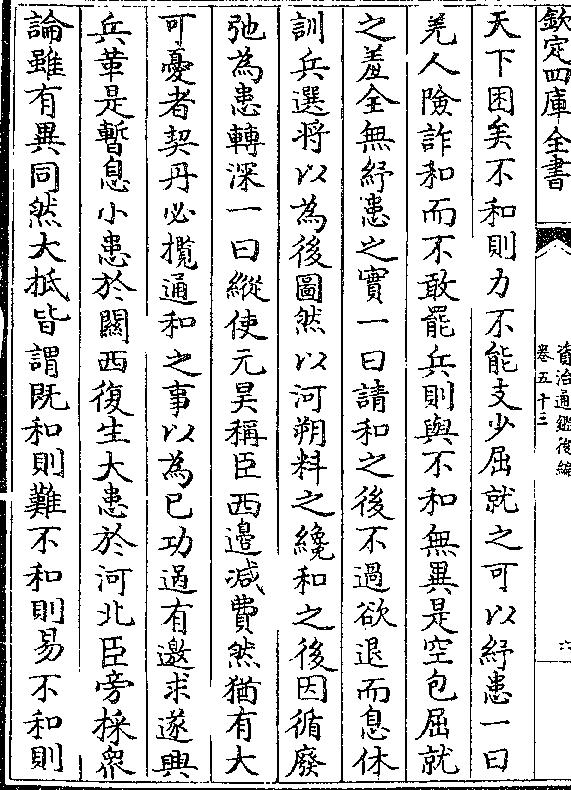 欽定四庫全書
資治通鑑後編
卷五十三
六
天下困矣不和則力不能支少屈就之可以紓患一曰
羌人險詐和而不敢罷兵則與不和無異是空包屈就
之羞全無紓患之實一曰請和之後不過欲退而息休
訓兵選將以為後圖然以河朔料之纔和之後因循廢
弛為患轉深一曰縱使元昊稱臣西邉減費然猶有大
可憂者契丹必攬通和之事以為已功過有邀求遂興
兵革是暫息小患於關西復生大患於河北臣旁採衆
論雖有異同然大抵皆謂既和則難不和則易不和則